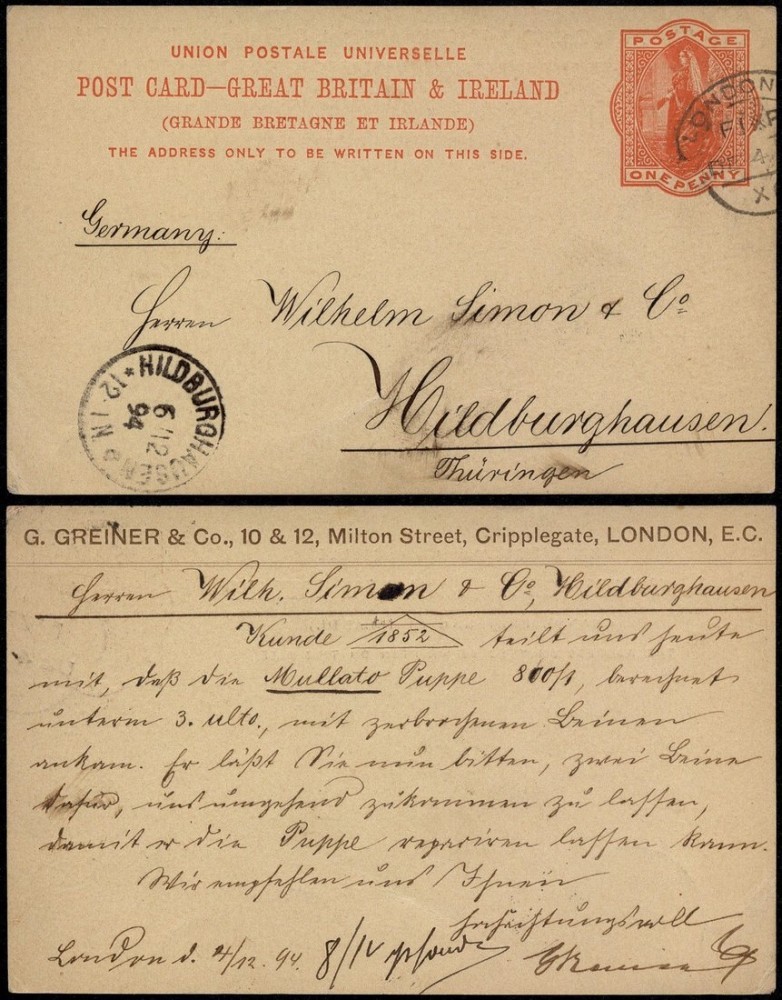 UNION POSTALE UNIVERSELLE
POST CARD—GREAT BRITAIN & IRELAND
(GRANDE BRETAGNE ET IRLANDE)
THE ADDRESS ONLY TO BE WRITTEN ON THIS SIDE.
POSTAGE
ONE PENNY
LONDON
X
Germany:
Herren Wilhelm Simon & Co
Hildburghausen.
Thüringen
HILDBURGHAUSEN
6/12
94
12-1N
G. GREINER & Co., 10 & 12, Milton Street, Cripplegate, LONDON, E.C.
Herren Wilh. Simon & Co, Hildburghausen
Kunde 1852 teilt uns heute
mit, daß die Mullato Puppe 800/1, berechnet
unterm 3. ulto., mit zerbrochenen Beinen
ankam. Er läßt Sie nun bitten, zwei Beine
dafür, uns umgehend zukommen zu lassen,
damit er die Puppe repariren lassen kann.
Wir empfehlen uns Ihnen
hochachtungsvoll
London d. 4/12. 94. 8/12